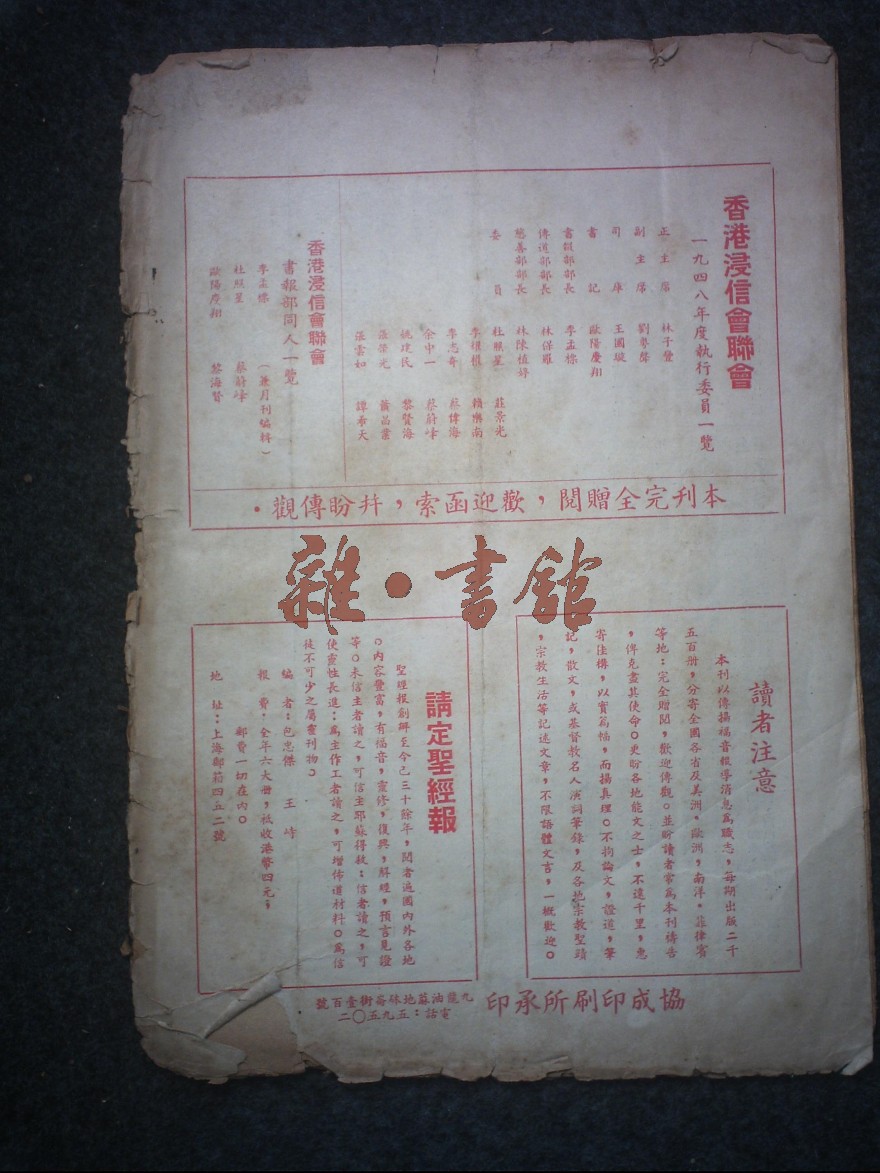 香港浸信會聯會
一九四八年度執行委員一覽
正主席 林子豐
副主席 劉粵聲
司庫 王國璇
書記 歐陽慶翔
書報部部長 李孟標
傳道部部長 林保羅
慈善部部長 林陳植婷
委員 杜照星 莊景光
李根根 賴興南
李志奇 蔡偉海
余中一 蔡蔚峰
姚建民 黎賢海
張榮光 蕭品業
張雲如 譚希天
香港浸信會聯會
書報部同人一覽
李孟標 (兼月刊編輯)
杜照星 蔡蔚峰
歐陽慶翔 黎海賢
本刊完全贈閱,歡迎函索,幷盼傳觀.
雜·書館
讀者注意
本刊以傳播福音報導消息爲職志,每期出版二千
五百册,分寄全國各省及美洲.歐洲,南洋.菲律賓
等地:完全贈閱,歡迎傳觀。並盼讀者常爲本刊禱告
,俾克盡其使命。更盼各地能文之士,不遠千里,惠
寄佳構,以實篇幅,而揚真理。不拘論文,證道,筆
記,散文,或基督教名人演詞筆錄,及各地宗教聖蹟
,宗教生活等記述文章,不限語體文言,一概歡迎。
請定聖經報
聖經報創辦至今已三十餘年,閱者遍國內外各地
。內容豐富,有福音,靈修,復興,解經,預言見證
等。未信主者讀之,可信主耶蘇得救:信者讀之,可
使靈性長進:爲主作工者讀之,可增佈道材料。爲信
徒不可少之屬靈刊物。
編者:包忠傑 王峙
報費:全年六大册,祗收港幣四元,
郵費一切在內。
地址:上海郵箱四五二號
協成印刷所承印
九龍油蔴地咸街壹百號
電話:五九五〇二